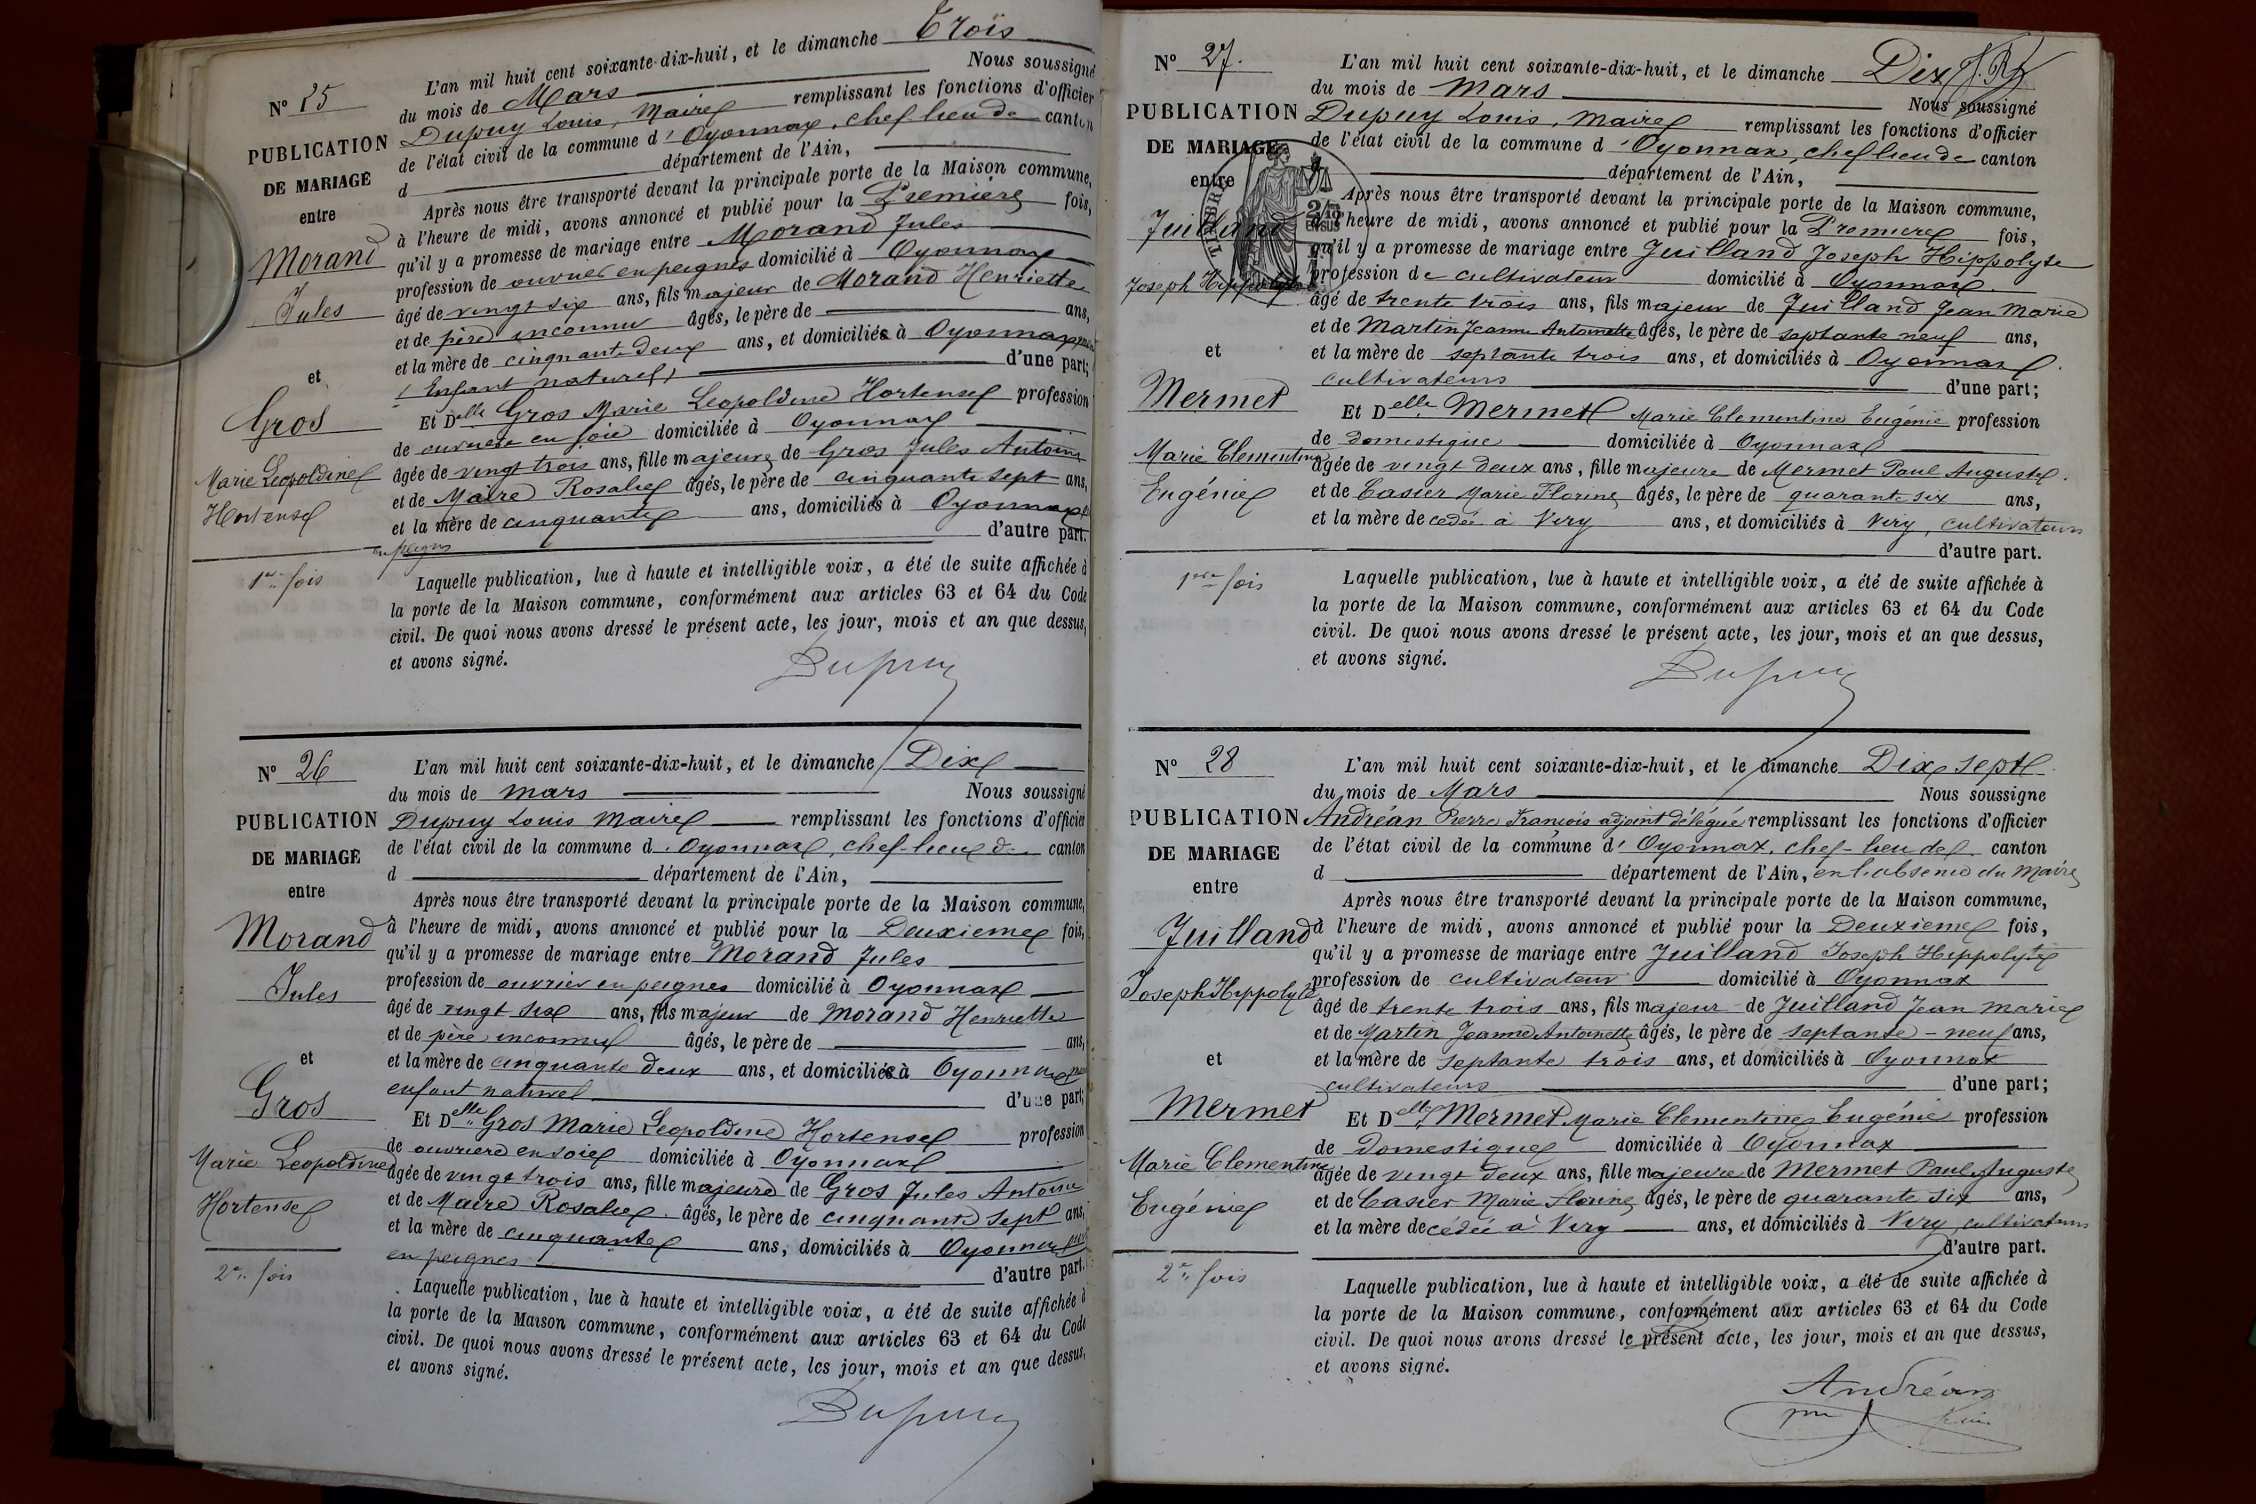 Nº 25
PUBLICATION
DE MARIAGE
entre
Morand
Jules
et
Gros
Marie Leopoldine
Hortense
1re fois
L'an mil huit cent soixante-dix-huit, et le dimanche Trois
du mois de Mars Nous soussigné
Dupuy Louis, Maire remplissant les fonctions d'officier
de l'état civil de la commune d'Oyonnax, chef lieu de canton
d département de l'Ain,
Après nous être transporté devant la principale porte de la Maison commune,
à l'heure de midi, avons annoncé et publié pour la Première fois,
qu'il y a promesse de mariage entre Morand Jules
profession de ouvrier en peignes domicilié à Oyonnax
âgé de vingt six ans, fils majeur de Morand Henriette
et de père inconnu âgés, le père de ans,
et la mère de cinquante deux ans, et domiciliés à Oyonnax
(Enfant naturel) d'une part;
Et Delle Gros Marie Leopoldine Hortense profession
de ouvrière en soie domiciliée à Oyonnax
âgée de vingt trois ans, fille majeure de Gros Jules Antoine
et de Maire Rosalie âgés, le père de cinquante sept ans,
et la mère de cinquante ans, domiciliés à Oyonnax
en peignes d'autre part.
Laquelle publication, lue à haute et intelligible voix, a été de suite affichée à
la porte de la Maison commune, conformément aux articles 63 et 64 du Code
civil. De quoi nous avons dressé le présent acte, les jour, mois et an que dessus,
et avons signé.
Dupuy
Nº 26
PUBLICATION
DE MARIAGE
entre
Morand
Jules
et
Gros
Marie Leopoldine
Hortense
2e fois
L'an mil huit cent soixante-dix-huit, et le dimanche Dix
du mois de mars Nous soussigné
Dupuy Louis Maire remplissant les fonctions d'officier
de l'état civil de la commune d. Oyonnax, chef-lieu de canton
d département de l'Ain,
Après nous être transporté devant la principale porte de la Maison commune,
à l'heure de midi, avons annoncé et publié pour la Deuxieme fois,
qu'il y a promesse de mariage entre Morand Jules
profession de ouvrier en peignes domicilié à Oyonnax
âgé de vingt six ans, fils majeur de Morand Henriette
et de père inconnu âgés, le père de ans,
et la mère de cinquante deux ans, et domiciliés à Oyonnax
enfant naturel d'une part;
Et Delle Gros Marie Leopoldine Hortense profession
de ouvriere en soie domiciliée à Oyonnax
âgée de vingt trois ans, fille majeure de Gros Jules Antoine
et de Maire Rosalie âgés, le père de cinquante sept ans,
et la mère de cinquante ans, domiciliés à Oyonnax
en peignes d'autre part.
Laquelle publication, lue à haute et intelligible voix, a été de suite affichée à
la porte de la Maison commune, conformément aux articles 63 et 64 du Code
civil. De quoi nous avons dressé le présent acte, les jour, mois et an que dessus,
et avons signé.
Dupuy
Nº 27.
PUBLICATION
DE MARIAGE
entre
Juilland
Joseph Hippolyte
et
Mermet
Marie Clementine
Eugénie
1ère fois
L'an mil huit cent soixante-dix-huit, et le dimanche Dix
du mois de Mars Nous soussigné
Dupuy Louis, Maire remplissant les fonctions d'officier
de l'état civil de la commune d'Oyonnax, chef lieu de canton
département de l'Ain,
Après nous être transporté devant la principale porte de la Maison commune,
à l'heure de midi, avons annoncé et publié pour la Premiere fois,
qu'il y a promesse de mariage entre Juilland Joseph Hippolyte
profession de cultivateur domicilié à Oyonnax.
âgé de trente trois ans, fils majeur de Juilland Jean Marie
et de Martin Jeanne Antoinette âgés, le père de septante neuf ans,
et la mère de septante trois ans, et domiciliés à Oyonnax.
cultivateurs d'une part;
Et Delle Mermet Marie Clementine Eugénie profession
de Domestique domiciliée à Oyonnax
âgée de vingt deux ans, fille majeure de Mermet Paul Auguste.
et de Casier Marie Florine âgés, le père de quarante six ans,
et la mère decedée à Viry ans, et domiciliés à Viry, cultivateurs
d'autre part.
Laquelle publication, lue à haute et intelligible voix, a été de suite affichée à
la porte de la Maison commune, conformément aux articles 63 et 64 du Code
civil. De quoi nous avons dressé le présent acte, les jour, mois et an que dessus,
et avons signé.
Dupuy
Nº 28
PUBLICATION
DE MARIAGE
entre
Juilland
Joseph Hippolyte
et
Mermet
Marie Clementine
Eugénie
2e fois
L'an mil huit cent soixante-dix-huit, et le dimanche Dix sept
du mois de Mars Nous soussigné
Andréan Pierre François adjoint délégué remplissant les fonctions d'officier
de l'état civil de la commune d'Oyonnax, chef-lieu de canton
d département de l'Ain, en l'absence du Maire
Après nous être transporté devant la principale porte de la Maison commune,
à l'heure de midi, avons annoncé et publié pour la Deuxieme fois,
qu'il y a promesse de mariage entre Juilland Joseph Hippolyte
profession de cultivateur domicilié à Oyonnax
âgé de trente trois ans, fils majeur de Juilland Jean Marie
et de Martin Jeanne Antoinette âgés, le père de septante-neuf ans,
et la mère de septante trois ans, et domiciliés à Oyonnax
cultivateurs d'une part;
Et Delle Mermet Marie Clementine Eugénie profession
de Domestique domiciliée à Oyonnax
âgée de vingt deux ans, fille majeure de Mermet Paul Auguste
et de Casier Marie Florine âgés, le père de quarante six ans,
et la mère decédée à Viry ans, et domiciliés à Viry cultivateurs
d'autre part.
Laquelle publication, lue à haute et intelligible voix, a été de suite affichée à
la porte de la Maison commune, conformément aux articles 63 et 64 du Code
civil. De quoi nous avons dressé le présent acte, les jour, mois et an que dessus,
et avons signé.
Andréan